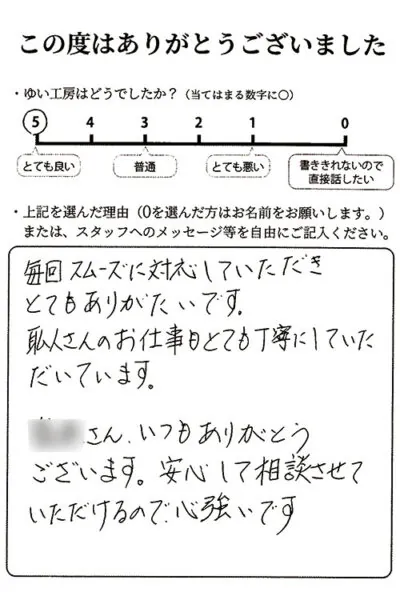 この度はありがとうございました
・ゆい工房はどうでしたか？（当てはまる数字に○）
5 4 3 2 1 0
とても良い 普通 とても悪い 書ききれないので
直接話したい
・上記を選んだ理由（0を選んだ方はお名前をお願いします。）
または、スタッフへのメッセージ等を自由にご記入ください。
毎回スムーズに対応していただき
とてもありがたいです。
職人さんのお仕事もとても丁寧にしていた
だいています。
さん、いつもありがとう
ございます。安心して相談させて
いただけるので心強いです